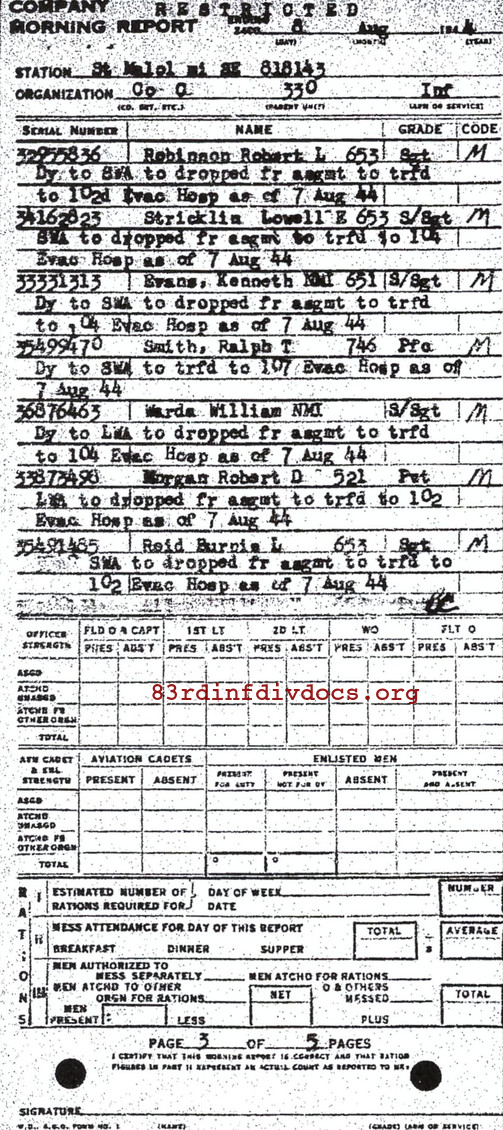 COMPANY RESTRICTED
MORNING REPORT ENDING 2400 8 Aug 1944
(DAY) (MONTH) (YEAR)
STATION St Malo1 mi SE 818143
ORGANIZATION Co G 330 Inf
(CO. DET. ETC.) (PARENT UNIT) (ARM OR SERVICE)
SERIAL NUMBER NAME GRADE CODE
32955836 Robinson Robert L 653 Sgt M
Dy to SWA to dropped fr asgmt to trfd
to 102d Evac Hosp as of 7 Aug 44
34162823 Stricklin Lowell E 653 S/Sgt M
SWA to dropped fr asgmt to trfd to 104
Evac Hosp as of 7 Aug 44
33331313 Evans, Kenneth NMI 651 S/Sgt M
Dy to SWA to dropped fr asgmt to trfd
to 104 Evac Hosp as of 7 Aug 44
35499470 Smith, Ralph T 746 Pfc M
Dy to SWA to trfd to 107 Evac Hosp as of
7 Aug 44
36876463 Warda William NMI S/Sgt M
Dy to LWA to dropped fr asgmt to trfd
to 104 Evac Hosp as of 7 Aug 44
33873498 Morgan Robert D 521 Pvt M
LWA to dropped fr asgmt to trfd to 102
Evac Hosp as of 7 Aug 44
35491485 Reid Burnis L 653 Sgt M
SWA to dropped fr asgmt to trfd to
102 Evac Hosp as of 7 Aug 44
OFFICER STRENGTH FLD O & CAPT 1ST LT 2D LT WO FLT O
PRES ABS'T PRES ABS'T PRES ABS'T PRES ABS'T PRES ABS'T
ASGD
ATCHD UNASGD
83rdinfdivdocs.org
ATCHD FR OTHER ORGN
TOTAL
AVN CADET & ENL STRENGTH AVIATION CADETS ENLISTED MEN
PRESENT ABSENT PRESENT FOR DUTY PRESENT NOT FOR DY ABSENT PRESENT AND ABSENT
ASGD
ATCHD UNASGD
ATCHD FR OTHER ORGN
TOTAL 0 0
RATIONS
I ESTIMATED NUMBER OF DAY OF WEEK NUMBER
RATIONS REQUIRED FOR DATE
II MESS ATTENDANCE FOR DAY OF THIS REPORT TOTAL ÷ 3 AVERAGE
BREAKFAST DINNER SUPPER
III MEN AUTHORIZED TO
MESS SEPARATELY MEN ATCHD FOR RATIONS
MEN ATCHD TO OTHER
ORGN FOR RATIONS NET O & OTHERS MESSED TOTAL
MEN PRESENT LESS PLUS
PAGE 3 OF 5 PAGES
I CERTIFY THAT THIS MORNING REPORT IS CORRECT AND THAT RATION
FIGURES IN PART II REPRESENT AN ACTUAL COUNT AS REPORTED TO ME.
SIGNATURE
W.D., A.G.O. FORM NO. 1 (NAME) (GRADE) (ARM OR SERVICE)